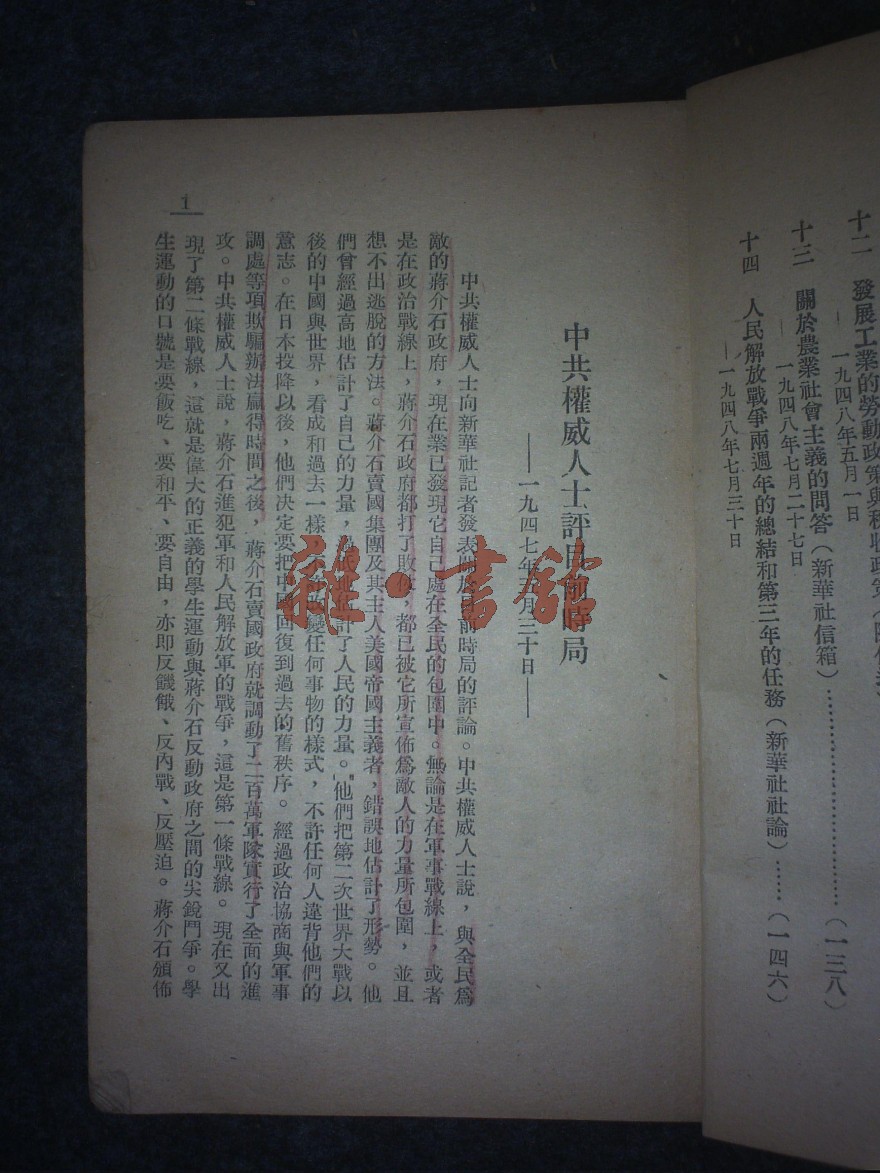 十二 發展工業的勞動政策與稅收政策
——一九四八年五月一日
……(一三八)
十三 關於農業社會主義的問答(新華社信箱)
——一九四八年七月二十七日
十四 人民解放戰爭兩週年的總結和第三年的任務(新華社社論)……(一四六)
——一九四八年七月三十日
中共權威人士評目前時局
——一九四七年五月三十日——
中共權威人士向新華社記者發表對於目前時局的評論。中共權威人士說,與全民爲
敵的蔣介石政府,現在業已發現它自己處在全民的包圍中。無論是在軍事戰線上,或者
是在政治戰線上,蔣介石政府都打了敗仗,都已被它所宣佈爲敵人的力量所包圍,並且
想不出逃脫的方法。蔣介石賣國集團及其主人美國帝國主義者,錯誤地估計了形勢。他
們曾經過高地估計了自己的力量,過低地估計了人民的力量。他們把第二次世界大戰以
後的中國與世界,看成和過去一樣,不許改變任何事物的樣式,不許任何人違背他們的
意志。在日本投降以後,他們決定要把中國回復到過去的舊秩序。經過政治協商與軍事
調處等項欺騙辦法贏得時間之後,蔣介石賣國政府就調動了二百萬軍隊實行了全面的進
攻。中共權威人士說,蔣介石進犯軍和人民解放軍的戰爭,這是第一條戰線。現在又出
現了第二條戰線,這就是偉大的正義的學生運動與蔣介石反動政府之間的尖銳鬥爭。學
生運動的口號是要飯吃、要和平、要自由,亦即反饑餓、反內戰、反壓迫。蔣介石頒佈
1
雜·書館